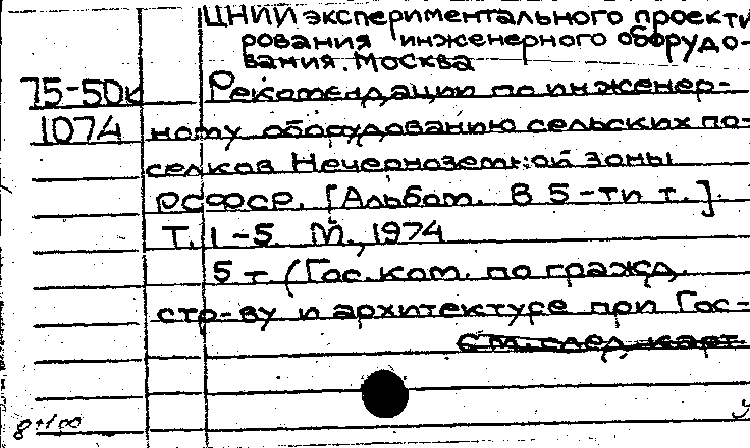 ЦНИИ экспериментального проекти
рования инженерного оборудо-
вания. Москва
75-50к Рекомендации по инженер-
1074 ному оборудованию сельских по-
селков Нечерноземной зоны
РСФСР. [Альбом. В 5-ти т.].
Т. 1-5 М., 1974
5 т (Гос. ком. по гражд.
стр-ву и архитектуре при Гос-
см. след. карт.